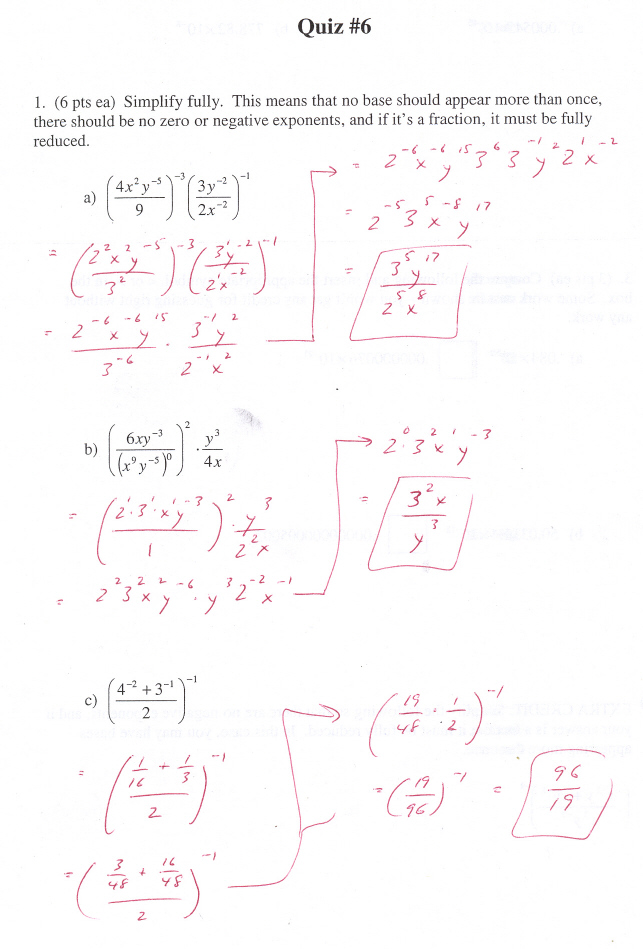 Quiz #6
1. (6 pts ea) Simplify fully. This means that no base should appear more than once,
there should be no zero or negative exponents, and if it's a fraction, it must be fully
reduced.
a) (4x²y⁻⁵ / 9)⁻³ (3y⁻² / 2x⁻²)⁻¹
= (2²x²y⁻⁵ / 3²)⁻³ (3¹y⁻² / 2¹x⁻²)⁻¹
= 2⁻⁶x⁻⁶y¹⁵ / 3⁻⁶ · 3⁻¹y² / 2⁻¹x²
= 2⁻⁶x⁻⁶y¹⁵3⁶3⁻¹y²2¹x⁻²
= 2⁻⁵3⁵x⁻⁸y¹⁷
= 3⁵y¹⁷ / 2⁵x⁸
b) (6xy⁻³ / (x⁹y⁻⁵)⁰)² · y³ / 4x
= (2¹·3¹·x¹y⁻³ / 1)² · y³ / 2²x
= 2²3²x²y⁻⁶·y³2⁻²x⁻¹
2⁰·3²x¹y⁻³
= 3²x / y³
c) (4⁻² + 3⁻¹ / 2)⁻¹
= (1/16 + 1/3 / 2)⁻¹
= (3/48 + 16/48 / 2)⁻¹
(19/48 · 1/2)⁻¹
= (19/96)⁻¹ = 96/19